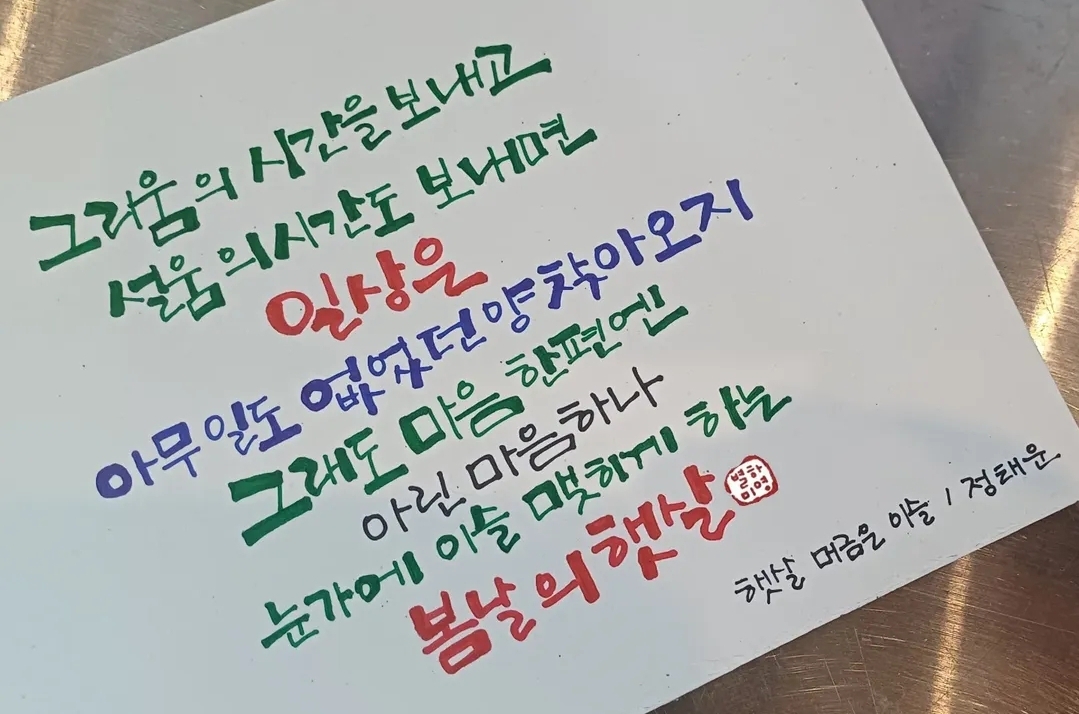 그리움의 시간을 보내고
설움의 시간도 보내면
일상은
아무일도 없었던 양 찾아오지
그래도 마음 한편엔
아린 마음 하나
눈가에 이슬 맺히게 하는
봄날의 햇살
별하
미영
햇살 머금은 이슬 / 정태운